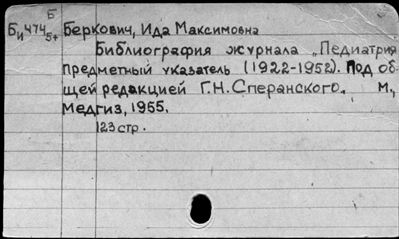 Б
Би474 Беркович, Ида Максимовна
5+
Библиография журнала „Педиатрия
предметный указатель (1922-1952). Под об-
щей редакцией Г.Н.Сперанского. М.,
Медгиз, 1955.
123 стр.